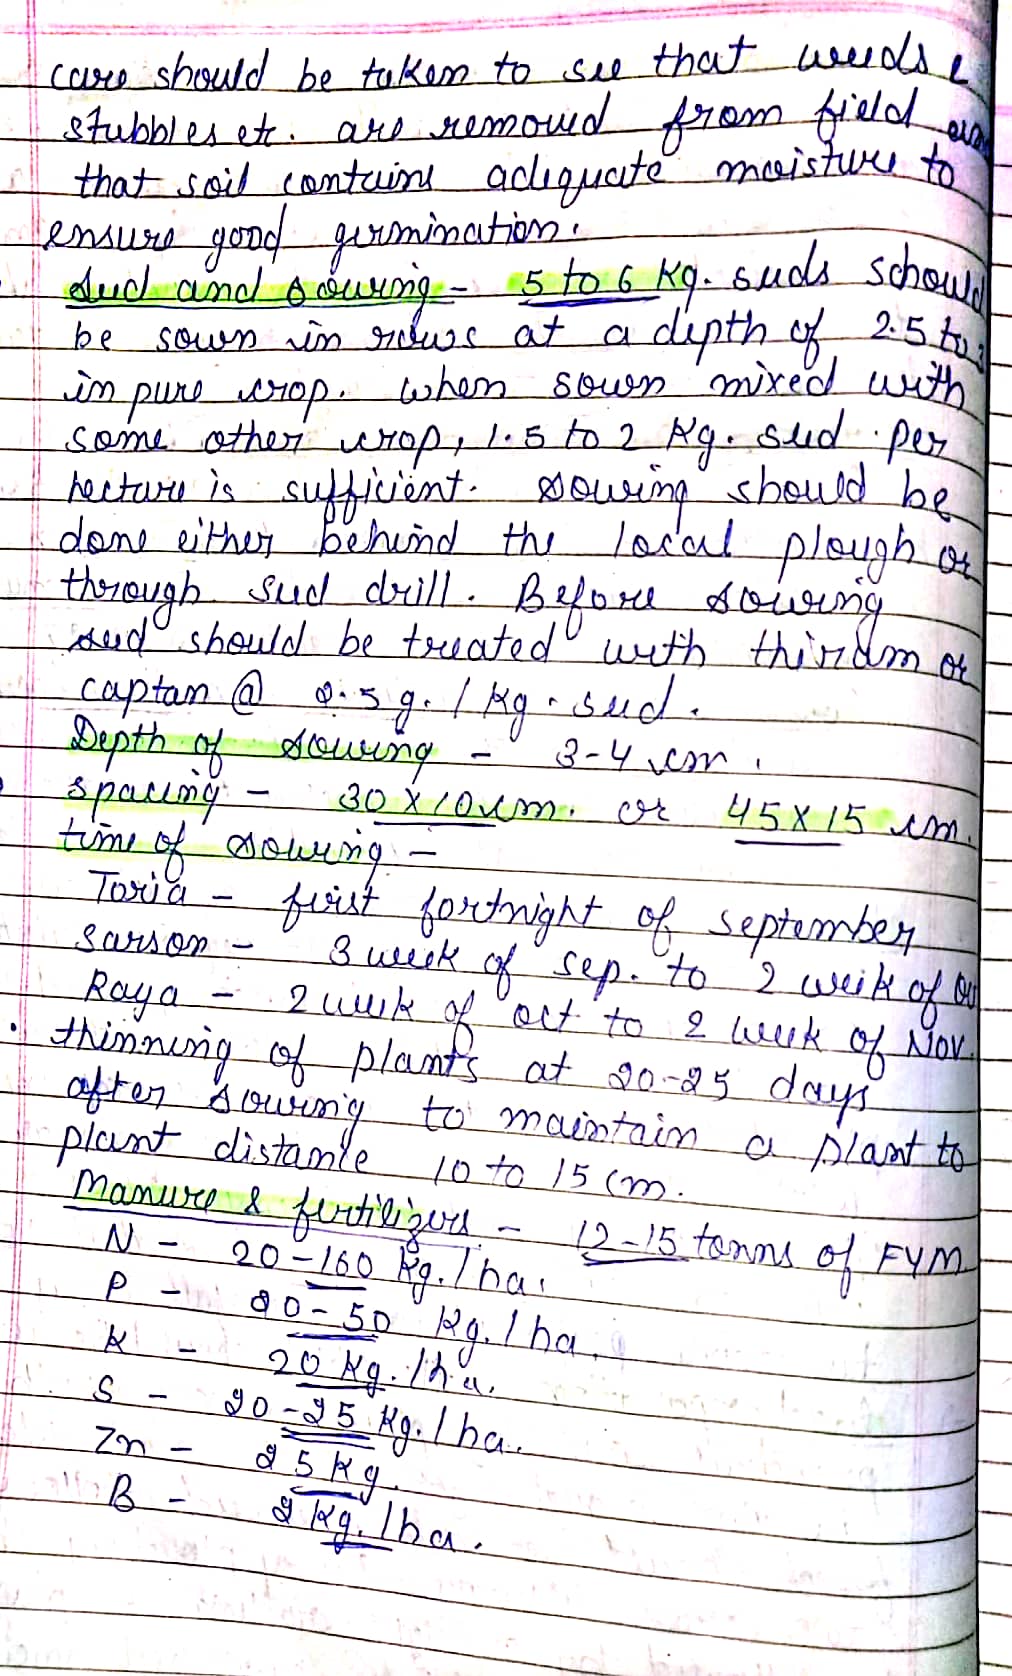 care should be taken to see that weeds &
stubbles etc. are removed from field
that soil contains adequate moisture to
ensure good germination.
Seed and sowing - 5 to 6 Kg. seeds schould
be sown in rows at a depth of 2.5 to
in pure crop. When sown mixed with
some other crop, 1.5 to 2 Kg. seed per
hectare is sufficient. Sowing should be
done either behind the local plough or
through seed drill. Before sowing
seed should be treated with thiram or
captan @ 2.5 g. / Kg. seed.
Depth of sowing - 3-4 cm.
spacing - 30 x 10 cm. or 45 x 15 cm.
time of sowing -
Toria - first fortnight of september
Sarson - 3 week of sep. to 2 week of
Raya - 2 week of oct to 2 week of Nov.
• thinning of plants at 20-25 days
after sowing to maintain a plant to
plant distance 10 to 15 cm.
Manure & fertilizers - 12-15 tonns of FYM
N - 20-160 Kg. / ha.
P - 20-50 Kg. / ha.
K - 20 Kg. / ha.
S - 20-25 Kg. / ha.
Zn - 25 Kg.
B - 2 Kg. / ha.